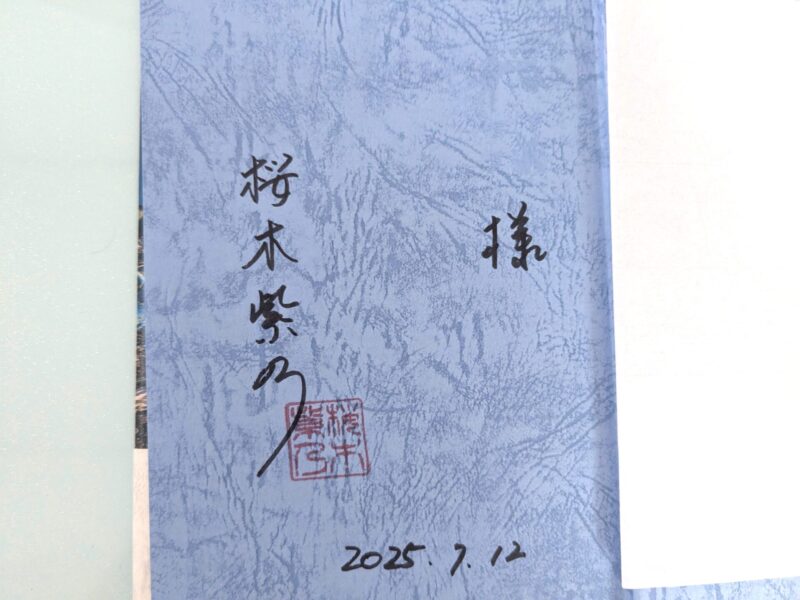 様
桜木紫乃
桜木
紫乃
2025.7.12